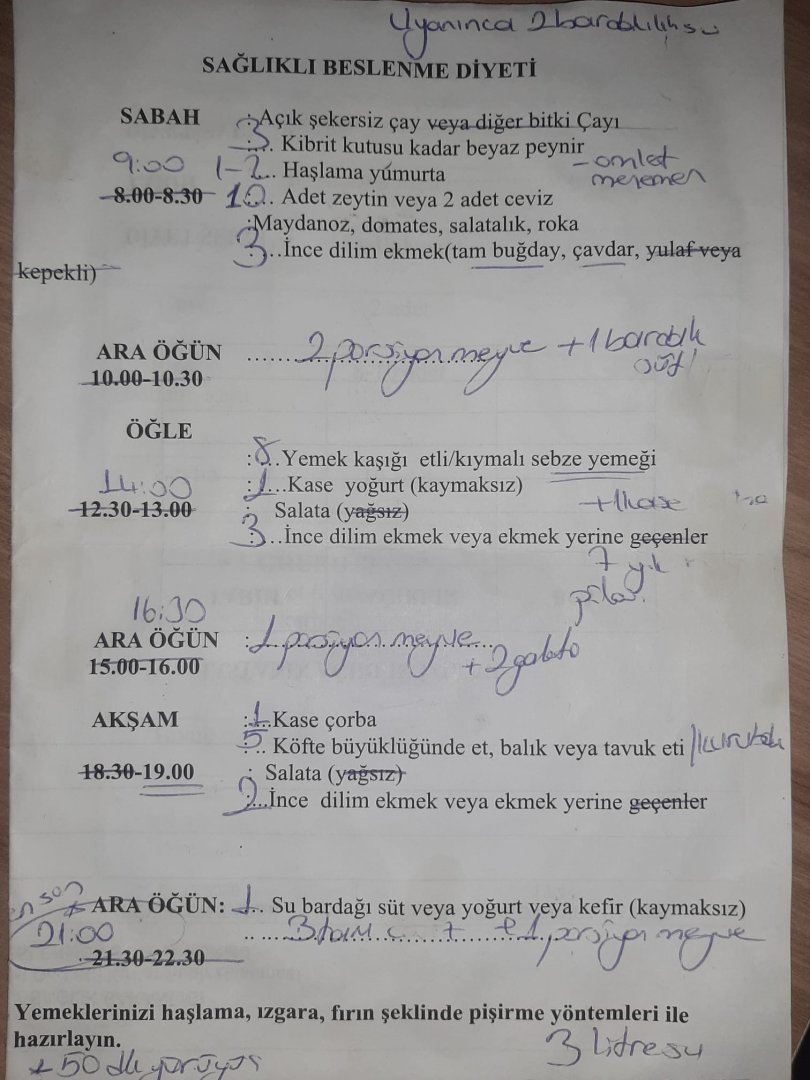 Uyanınca 2 bardak ılık su
SAĞLIKLI BESLENME DİYETİ
SABAH : Açık şekersiz çay veya diğer bitki Çayı
3 Kibrit kutusu kadar beyaz peynir
9:00 1-2... Haşlama yumurta - omlet
menemen
8.00-8.30 10.. Adet zeytin veya 2 adet ceviz
:Maydanoz, domates, salatalık, roka
3..İnce dilim ekmek(tam buğday, çavdar, yulaf veya
kepekli)
ARA ÖĞÜN 2 porsiyon meyve +1 bardak
10.00-10.30 süt
ÖĞLE
:8..Yemek kaşığı etli/kıymalı sebze yemeği
14:00 :1...Kase yoğurt (kaymaksız)
12.30-13.00 : Salata (yağsız) +1 kase
3..İnce dilim ekmek veya ekmek yerine geçenler
7 yk
pilav
16:30
ARA ÖĞÜN :1 porsiyon meyve
15.00-16.00 +2 galeta
AKŞAM :1.Kase çorba
5.. Köfte büyüklüğünde et, balık veya tavuk eti /kurubak
18.30-19.00 : Salata (yağsız)
2...İnce dilim ekmek veya ekmek yerine geçenler
en son
ARA ÖĞÜN: 1.. Su bardağı süt veya yoğurt veya kefir (kaymaksız)
21:00 3 tam c + 1 porsiyon meyve
21.30-22.30
Yemeklerinizi haşlama, ızgara, fırın şeklinde pişirme yöntemleri ile
hazırlayın.
3 litre su
+50 dk yürüyüş